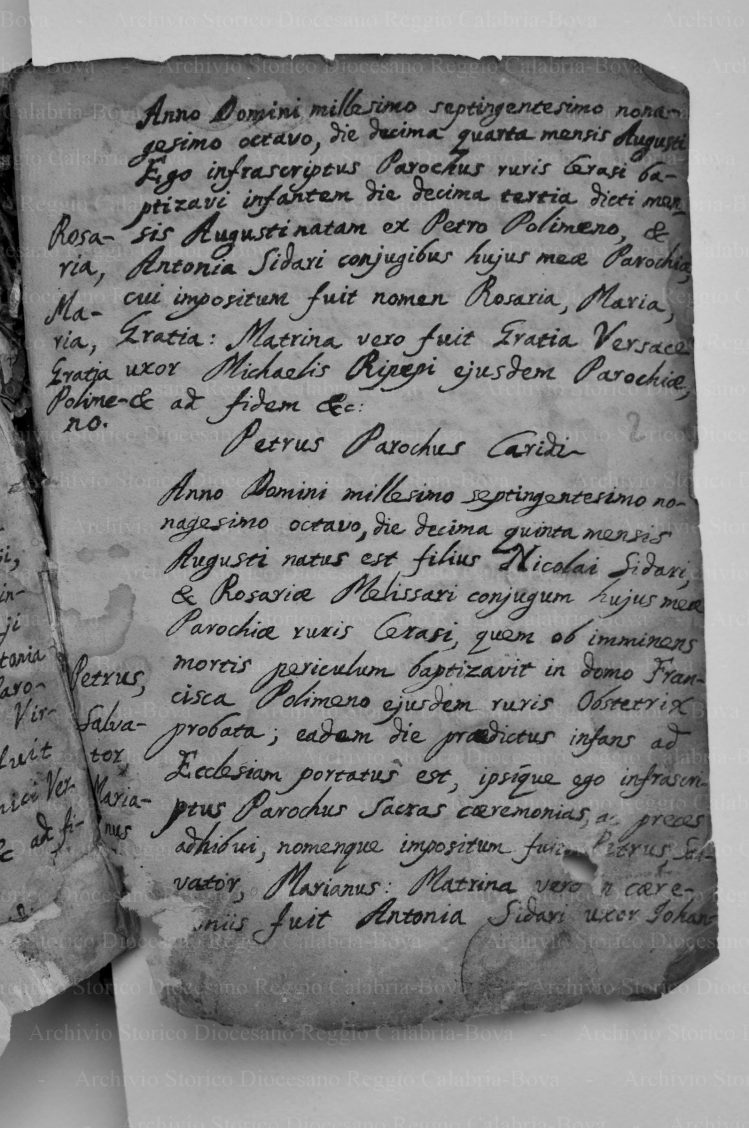 Anno Domini millesimo septingentesimo nona-
gesimo octavo, die decima quarta mensis Augusti
Ego infrascriptus Parochus ruris Cerasi ba-
ptizavi infantem die decima tertia dicti men-
sis Augusti natam ex Petro Polimeno, &
Antonia Sidari conjugibus hujus meæ Parochiæ,
cui impositum fuit nomen Rosaria, Maria,
Gratia: Matrina vero fuit Gratia Versace
uxor Michaelis Ripepi ejusdem Parochiæ,
& ad fidem &c:
Rosa-
ria,
Ma-
ria,
Gratia
Polime-
no.
Petrus Parochus Caridi
Anno Domini millesimo septingentesimo no-
nagesimo octavo, die decima quinta mensis
Augusti natus est filius Nicolai Sidari,
& Rosariæ Melissari conjugum hujus meæ
Parochiæ ruris Cerasi, quem ob imminens
mortis periculum baptizavit in domo Fran-
cisca Polimeno ejusdem ruris Obstetrix
probata; eadem die prædictus infans ad
Ecclesiam portatus est, ipsique ego infrascri-
ptus Parochus sacras cæremonias, ac preces
adhibui, nomenque impositum fuit Petrus, Sal-
vator, Marianus: Matrina vero in cære-
moniis fuit Antonia Sidari uxor Johan-
Petrus,
Salva-
tor,
Maria-
nus
2
si,
in-
ji
tonia
Paro-
Vir-
fuit
nici Ver-
&c ad fi-
Archivio Storico Diocesano Reggio Calabria-Bova